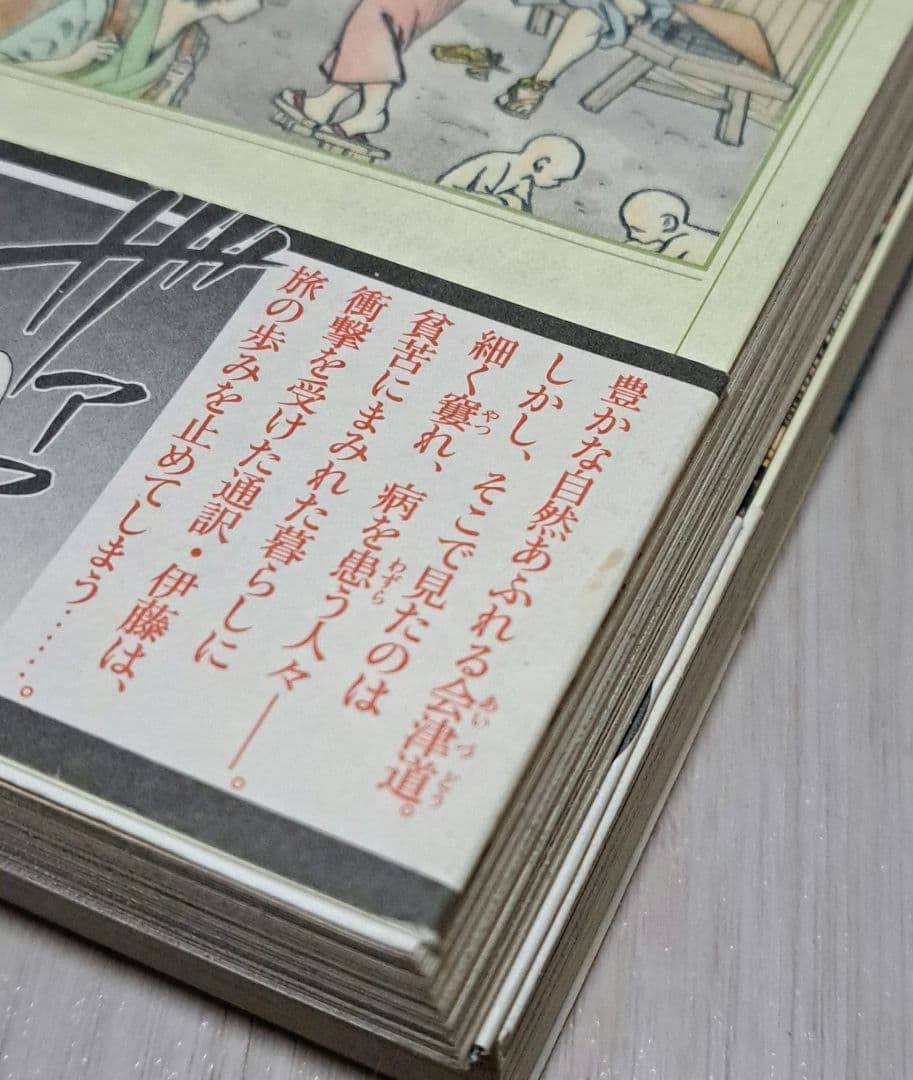 豊かな自然あふれる会津道。
あいづどう
しかし、そこで見たのは
細く窶れ、病を患う人々――。
やつ
わずら
貧苦にまみれた暮らしに
衝撃を受けた通訳・伊藤は、
旅の歩みを止めてしまう……。